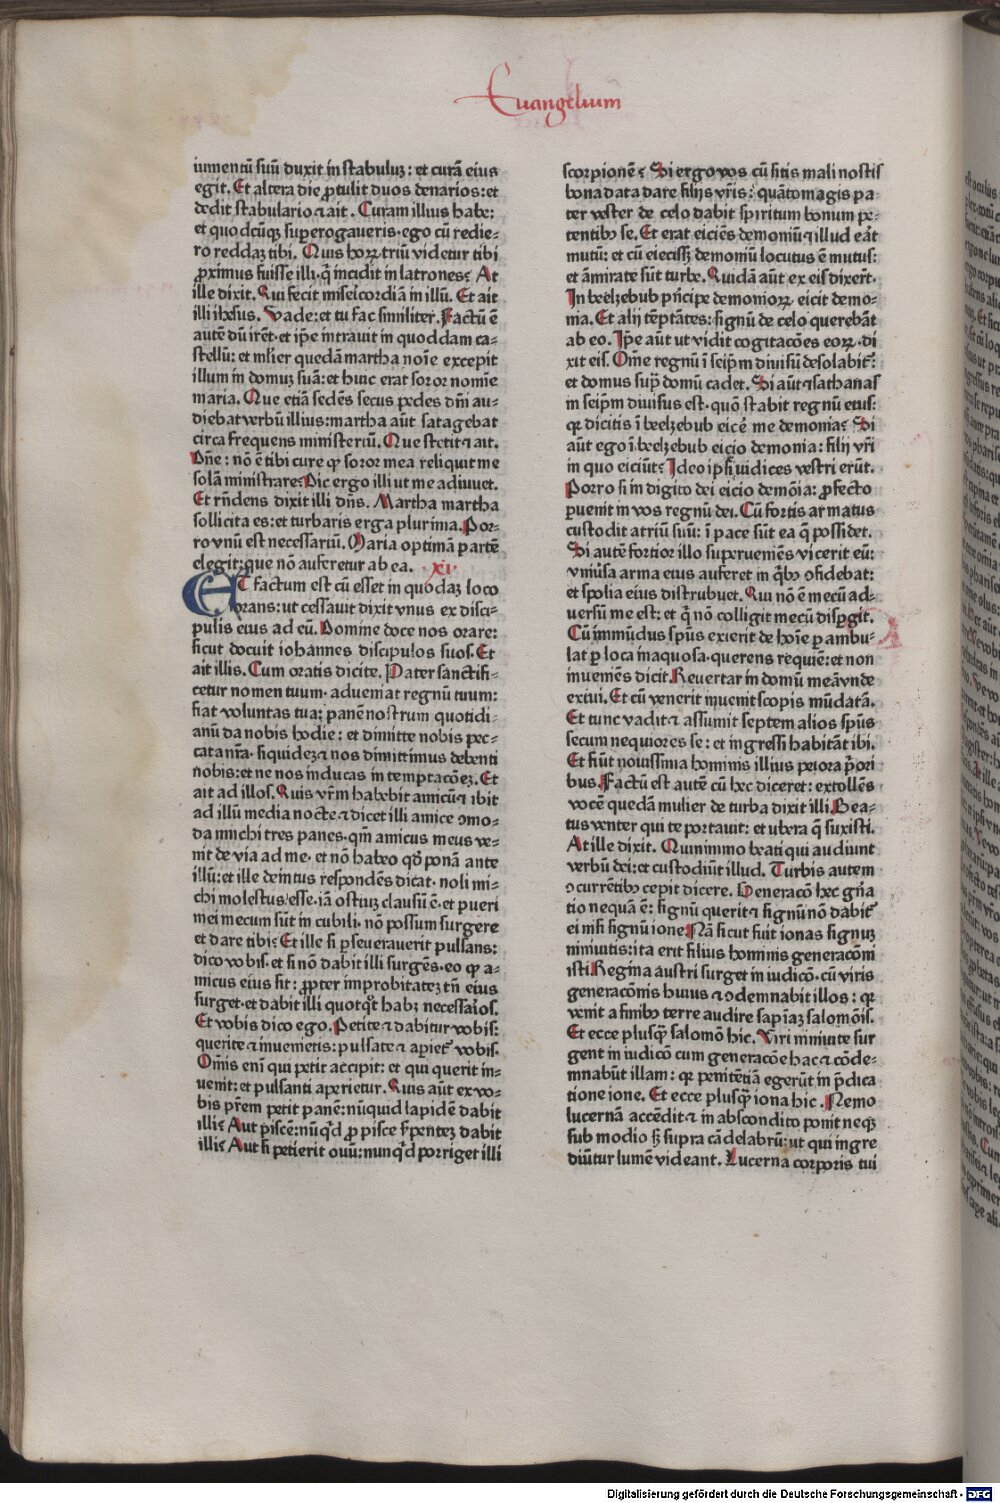 Euangelium
iumentū suū duxit in stabuluꝫ: et curā eius
egit. Et altera die ꝓtulit duos denarios: et
dedit stabulario ⁊ ait. Curam illius habe:
et quodcūqꝫ supererogaueris· ego cū redie⸗
ro reddaꝫ tibi. Quis hoꝝ· triū videtur tibi
ꝓximus fuisse illi· q̄ incidit in latrones? At
ille dixit. Qui fecit misericordiā in illū. Et ait
illi ihesus. Vade: et tu fac similiter. Factū ē
autē dū irēt· et ip̄e intrauit in quoddam ca⸗
stellū: et mlier quedā martha noīe excepit
illum in domuꝫ suā: et huic erat soror nomīe
maria. Que etiā sedēs secus pedes dn̄i au⸗
diebat verbū illius: martha aūt satagebat
circa frequens ministeriū. Que stetit ⁊ ait.
Dn̄e: nō ē tibi cure ꝙ soror mea reliquit me
solā ministrare? Dic ergo illi ut me adiuuet.
Et rn̄dens dixit illi dn̄s. Martha martha
sollicita es: et turbaris erga plurima. Por⸗
ro vnū est necessariū. Maria optimā partē
elegit: que nō auferetur ab ea. ·xi·
ET factum est cū esset in quodaꝫ loco
orans: ut cessauit dixit vnus ex disci⸗
pulis eius ad eū. Domine doce nos orare:
sicut docuit iohannes discipulos suos. Et
ait illis. Cum oratis dicite. Pater sanctifi⸗
cetur nomen tuum· adueniat regnū tuum:
fiat voluntas tua; panē nostrum quotidi⸗
anū da nobis hodie: et dimitte nobis pec⸗
cata nr̄a· siquideꝫ ⁊ nos dimittimus debenti
nobis: et ne nos inducas in temptacōeꝫ. Et
ait ad illos. Quis vr̄m habebit amicū ⁊ ibit
ad illū media nocte ⁊ dicet illi amice ꝯmo⸗
da michi tres panes· qm̄ amicus meus ve⸗
nit de via ad me· et nō habeo qd̄ ponā ante
illū: et ille deintus respondēs dicat· noli mi⸗
chi molestus esse· iā ostiuꝫ clausū ē· et pueri
mei mecum sūt in cubili· nō possum surgere
et dare tibi? Et ille si ꝑseuerauerit pulsans:
dico vobis· et si nō dabit illi surgēs· eo ꝙ a⸗
micus eius sit: ꝓpter improbitateꝫ tn̄ eius
surget· et dabit illi quotqt̄ habꝫ necessaīos.
Et vobis dico ego. Petite ⁊ dabitur vobis:
querite ⁊ inuenietis: pulsate ⁊ apiet᷑ vobis.
Om̄is eni qui petit accipit: et qui querit in⸗
uenit: et pulsanti aperietur. Quis aūt ex vo⸗
bis pr̄em petit panē: nūquid lapidē dabit
illi? Aut piscē: nūqd̄ ꝓ pisce s̄penteꝫ dabit
illi? Aut si petierit ouū: nunqd̄ porriget illi
scorpionē? Si ergo vos cū sitis mali nostis
bona data dare filijs vr̄is: quātomagis pa⸗
ter vester de celo dabit spiritum bonum pe⸗
tentibꝰ se. Et erat eiciēs demoniū ⁊ illud eāt
mutū: et cū eiecissꝫ demoniū locutus ē mutus:
et āmirate sūt turbe. Quidā aūt ex eis dixer̄t.
In beelzebub pn̄cipe demonioꝝ eicit demo⸗
nia. Et alij tēptātes: signū de celo querebāt
ab eo. Ip̄e aūt ut vidit cogitacōes eoꝝ· di
xit eis. Om̄e regnū ī seip̄m diuisū desolabit᷑:
et domus sup̄ domū cadet. Si aūt ⁊ sathanas
in seip̄m diuisus est· quō stabit regnū eius:
qꝛ dicitis ī beelzebub eicē me demonia? Si
aūt ego ī beelzebub eicio demonia: filij vr̄i
in quo eiciūt? Ideo ip̄i iudices vestri erūt.
Porro si in digito dei eicio demōia: ꝓfecto
ꝑuenit in vos regnū dei. Cū fortis armatus
custodit atriū suū: ī pace sūt ea q̄ possidet.
Si autē fortior illo superueniēs vicerit eū:
vniūsa arma eius auferet in q̄bꝰ ꝯfidebat:
et spolia eius distribuet. Qui nō ē mecū ad⸗
versū me est: et q̄ nō colligit mecū disꝑgit.
Cū īmūdus sp̄us exierit de hoīe ꝑambu⸗
lat ꝑ loca inaquosa· querens requiē: et non
inueniēs dicit. Reuertar in domū meā vnde
exiui. Et cū venerit inuenit scopis mūdatā.
Et tunc vadit ⁊ assumit septem alios sp̄us
secum nequiores se: et ingressi habitāt ibi.
Et fiūt nouissima hominis illius peiora p̄ori
bus. Factū est autē cū hec diceret: extollēs
vocē quedā mulier de turba dixit illi. Bea⸗
tus venter qui te portauit: et ubera q̄ suxisti.
At ille dixit. Quinimmo beati qui audiunt
verbū dei: et custodiūt illud. Turbis autem
ꝯcurrētibꝰ cepit dicere. Generacō hec gn̄a
tio nequā ē: signū querit ⁊ signū nō dabit᷑
ei nisi signū ione. Nā sicut fuit ionas signuꝫ
niniuitis: ita erit filius hominis generacōni
isti. Regina austri surget in iudicō· cū viris
generacōnis huius ⁊ ꝯdemnabit illos: qꝛ
venit a finibꝰ terre audire sapiaꝫ salomōis.
Et ecce plusq̄ salomō hic. Viri niniuite sur
gent in iudicō cum generacōe hac ⁊ cōde⸗
mnabūt illam: qꝛ penitētiā egerūt in p̄dica
tione ione. Et ecce plusq̄ iona hic. Nemo
lucernā accēdit ⁊ in abscondito ponit neqꝫ
sub modio sꝫ supra cādelabrū: ut qui ingre
diūtur lumē videant. Lucerna corporis tui
Digitalisierung gefördert durch die Deutsche Forschungsgemeinschaft - DFG